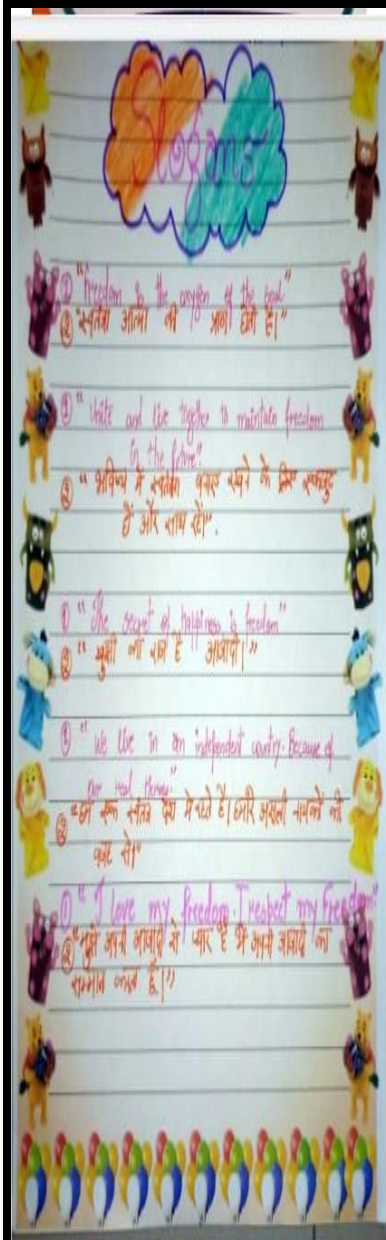 Slogans
① "Freedom is the oxygen of the soul"
② "स्वतंत्रता आत्मा की प्राण होती है।"
① "Unite and live together to maintain freedom
in the future."
② "भविष्य में स्वतंत्रता बनाए रखने के लिए एकजुट
हों और साथ रहें।".
① "The secret of happiness is freedom"
② "खुशी का राज है आजादी।"
① "We live in an independent country. Because of
our real heroes."
② "हम एक स्वतंत्र देश में रहते है। हमारे असली नायकों की
वजह से।"
① "I love my freedom. I respect my freedom"
② "मुझे अपनी आजादी से प्यार है मैं अपनी आजादी का
सम्मान करता हूँ।"